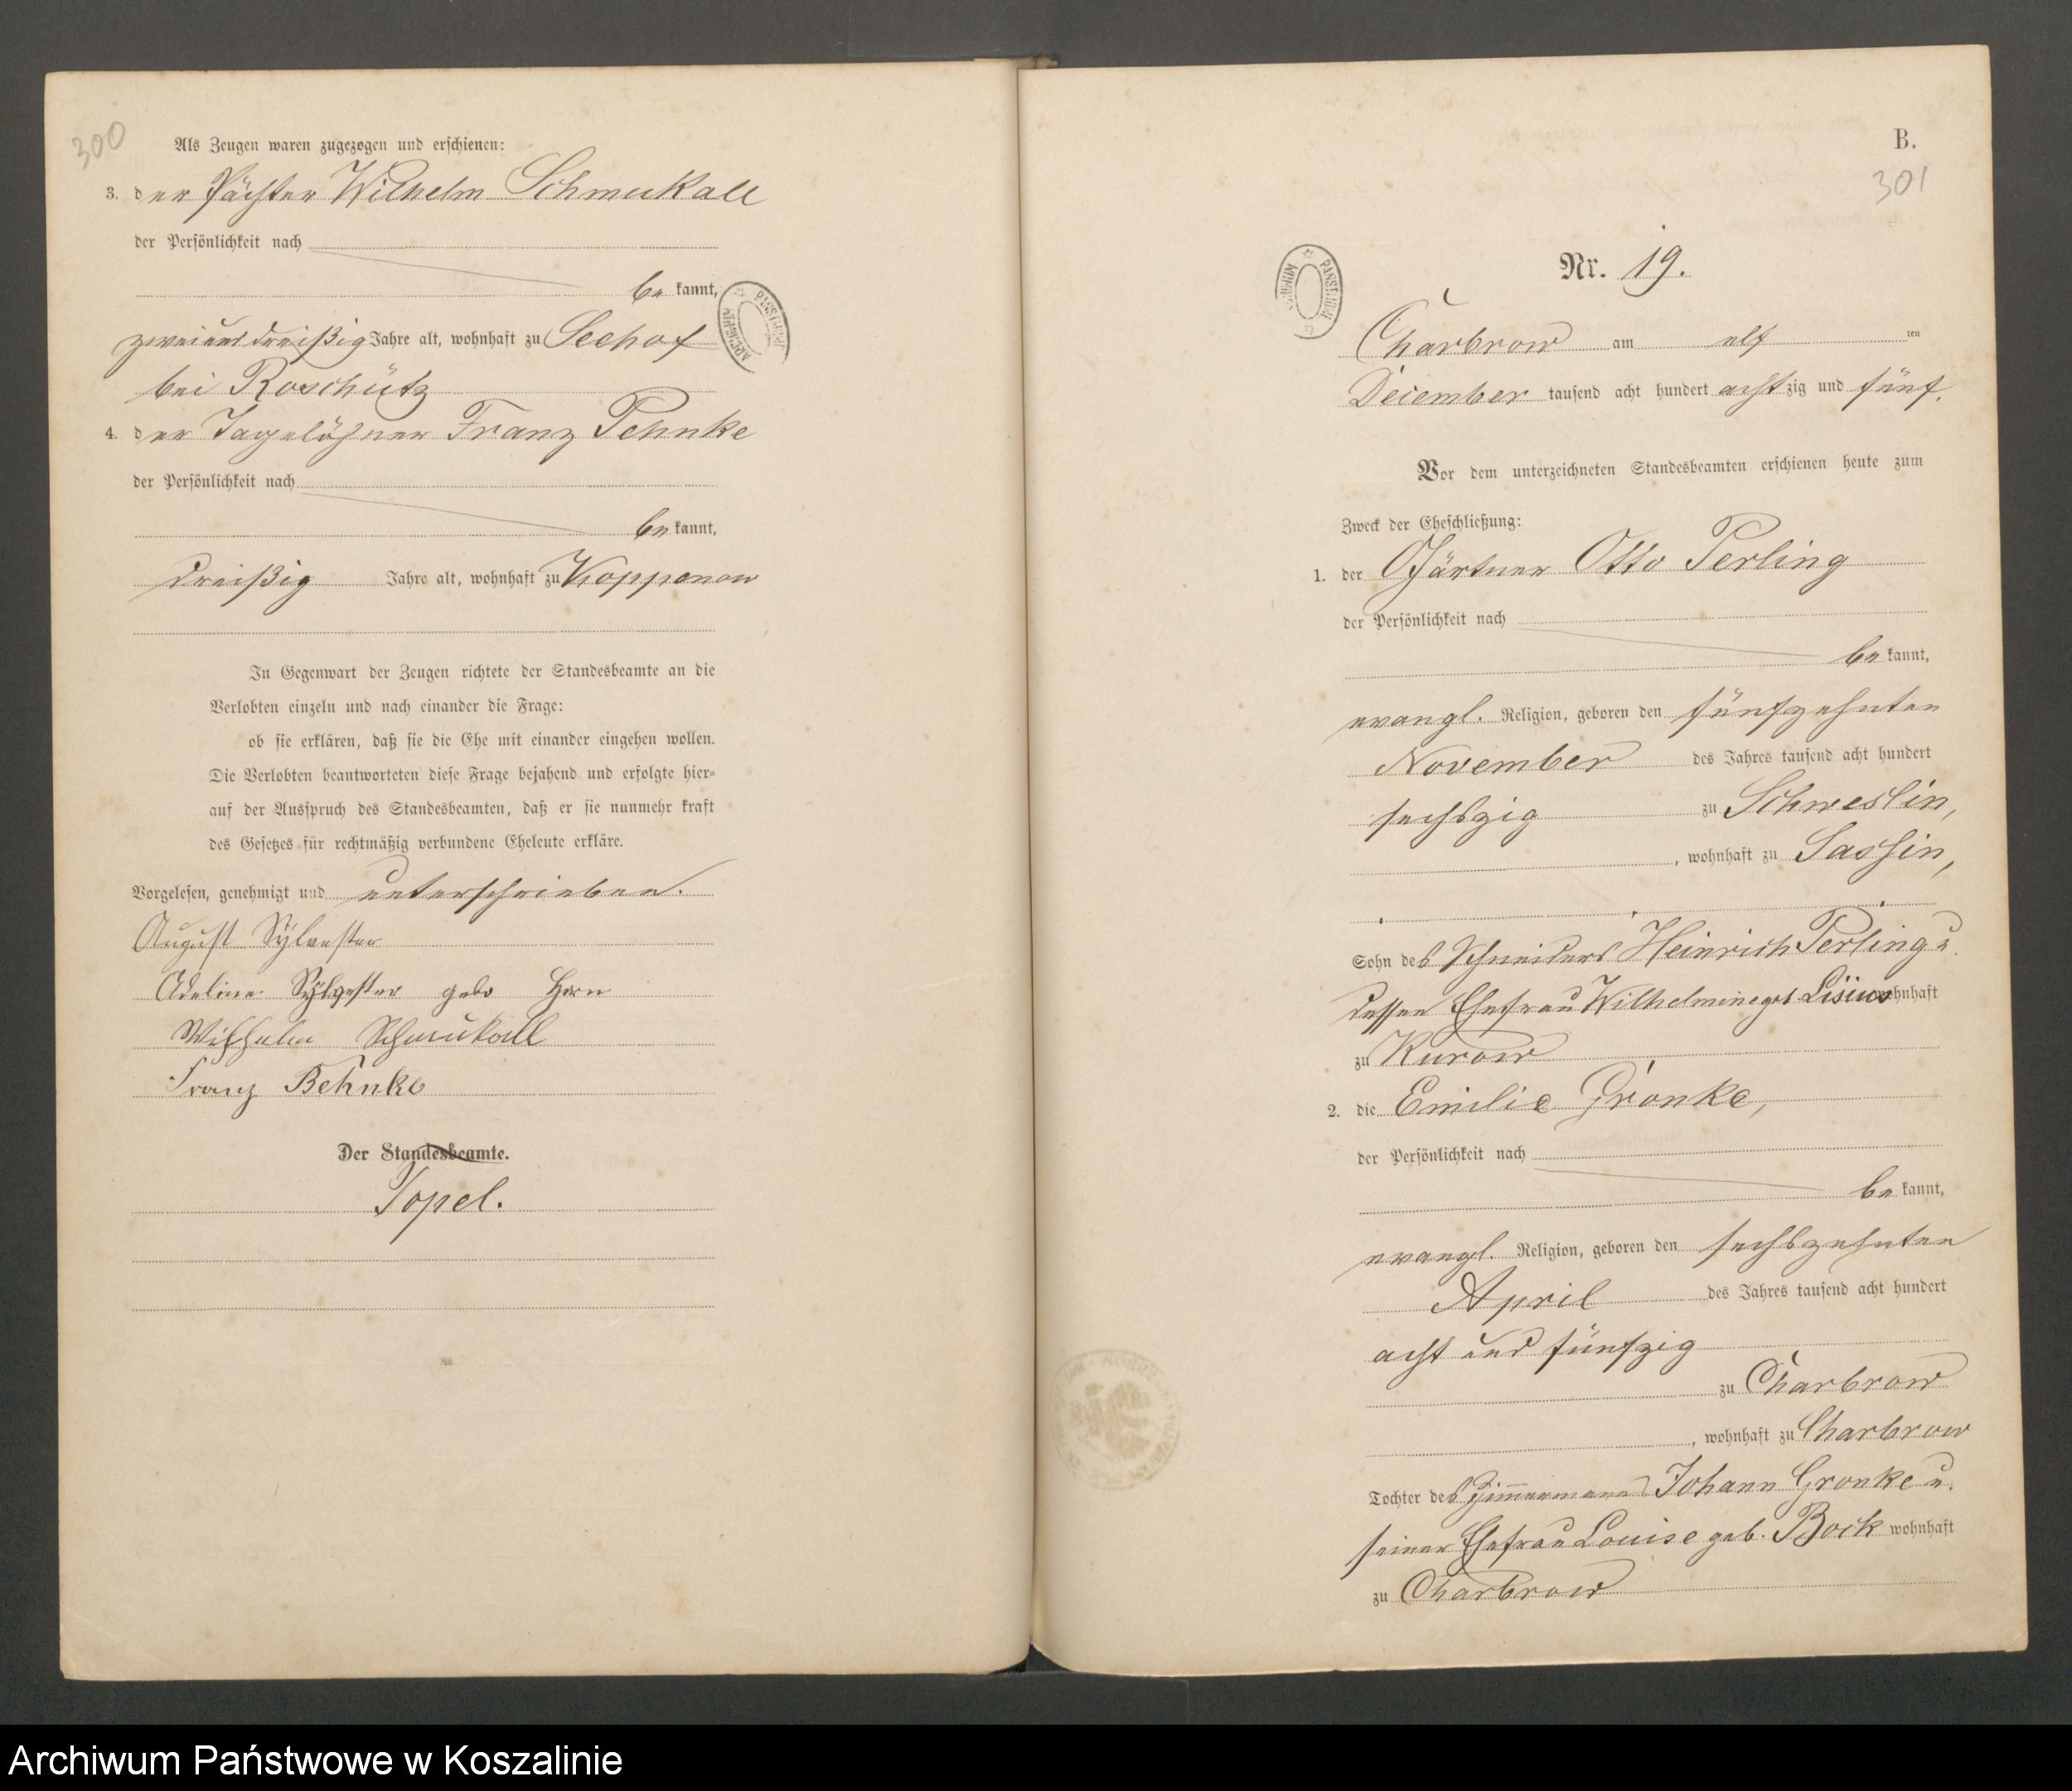 300
Als Zeugen waren zugezogen und erschienen:
3. der Pächter Wilhelm Schmukall
der Persönlichkeit nach
be kannt,
zweiunddreißig Jahre alt, wohnhaft zu Seehof
bei Roschütz
4. der Tagelöhner Franz Pehnke
der Persönlichkeit nach
be kannt,
dreißig Jahre alt, wohnhaft zu Koppenow
In Gegenwart der Zeugen richtete der Standesbeamte an die
Verlobten einzeln und nach einander die Frage:
ob sie erklären, daß sie die Ehe mit einander eingehen wollen.
Die Verlobten beantworteten diese Frage bejahend und erfolgte hier-
auf der Ausspruch des Standesbeamten, daß er sie nunmehr kraft
des Gesetzes für rechtmäßig verbundene Eheleute erkläre.
Vorgelesen, genehmigt und unterschrieben.
August Sylvester
Adeline Sylvester geb Horn
Wilhelm Schmukall
Franz Behnke
Der Standesbeamte.
Topel.
B.
301
Nr. 19.
Charbrow am elf ten
December tausend acht hundert achtzig und fünf.
Vor dem unterzeichneten Standesbeamten erschienen heute zum
Zweck der Eheschließung:
1. der Gärtner Otto Perling
der Persönlichkeit nach
be kannt,
evangl. Religion, geboren den fünfzehnten
November des Jahres tausend acht hundert
sechszig zu Schweslin,
, wohnhaft zu Sassin,
Sohn des Schneiders Heinrich Perling u.
dessen Ehefrau Wilhelmine geb Lisius wohnhaft
zu Kurow
2. die Emilie Gronke,
der Persönlichkeit nach
be kannt,
evangl. Religion, geboren den sechszehnten
April des Jahres tausend acht hundert
acht und fünfzig
zu Charbrow
, wohnhaft zu Charbrow
Tochter des Zimmermanns Johann Gronke u.
seiner Ehefrau Louise geb. Bock wohnhaft
zu Charbrow
Archiwum Państwowe w Koszalinie